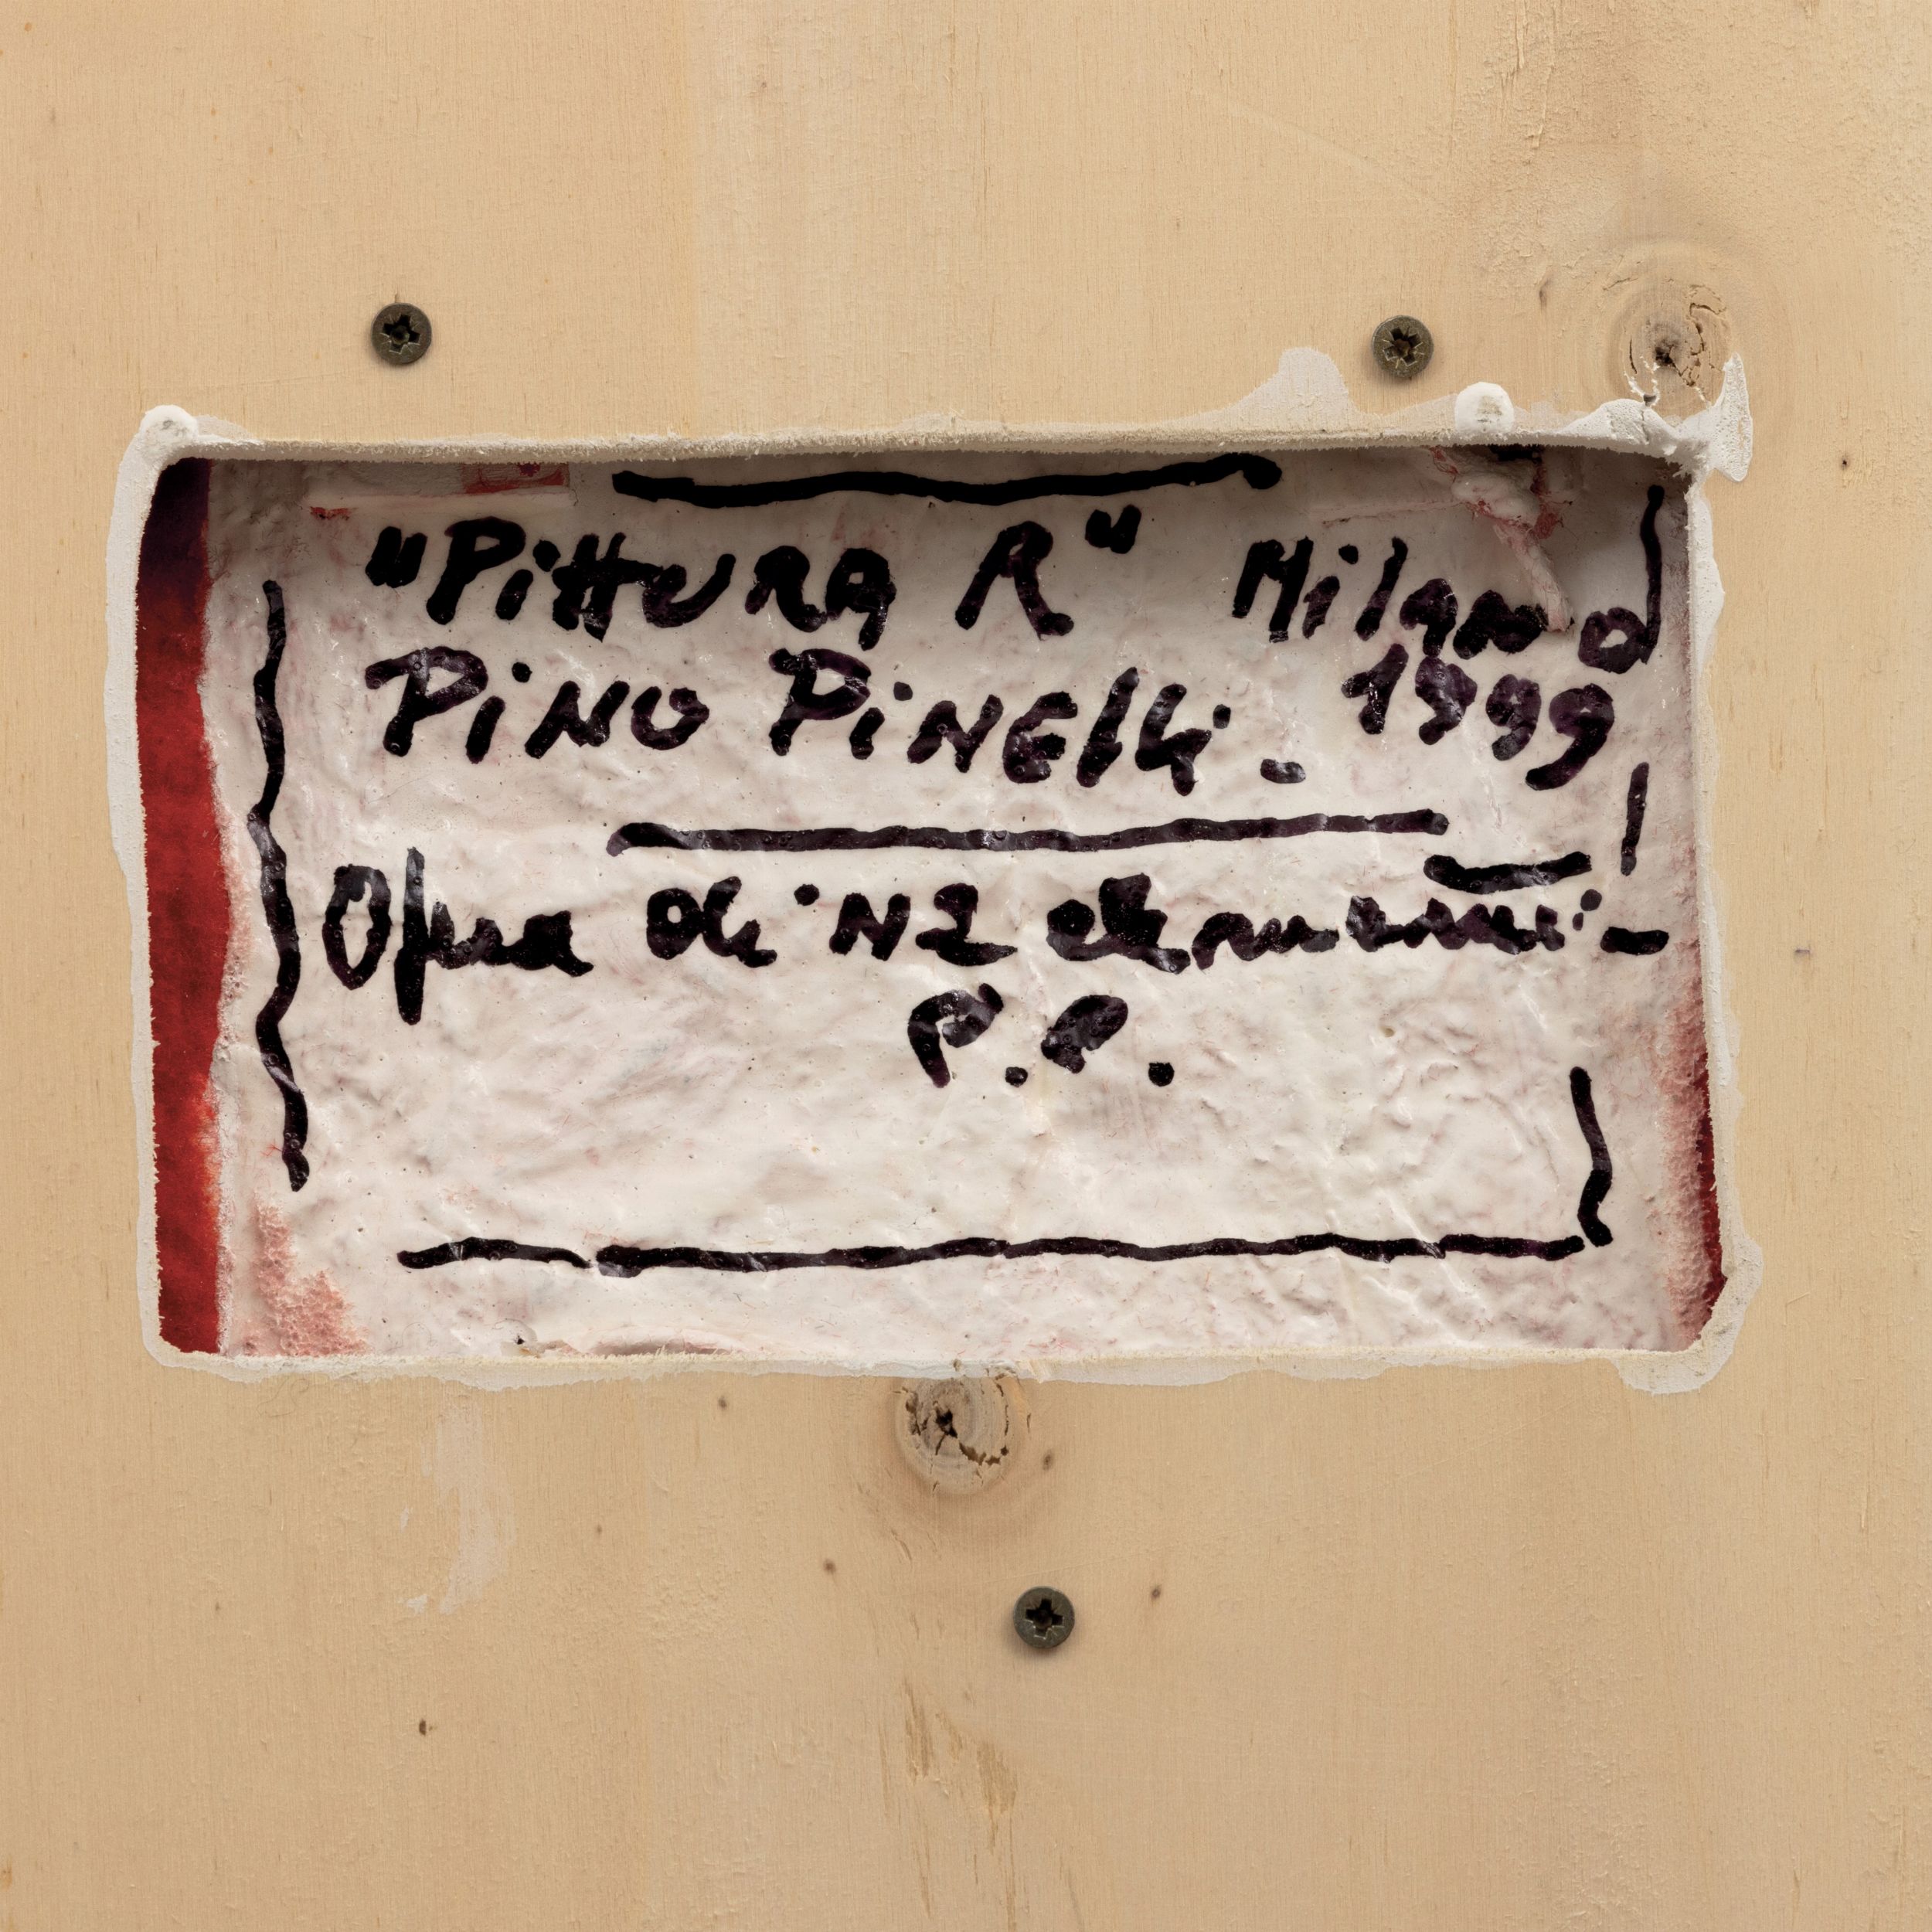 "Pittura R" Milano
Pino Pinelli. - 1999
Opera di N2 elementi -
P.P.